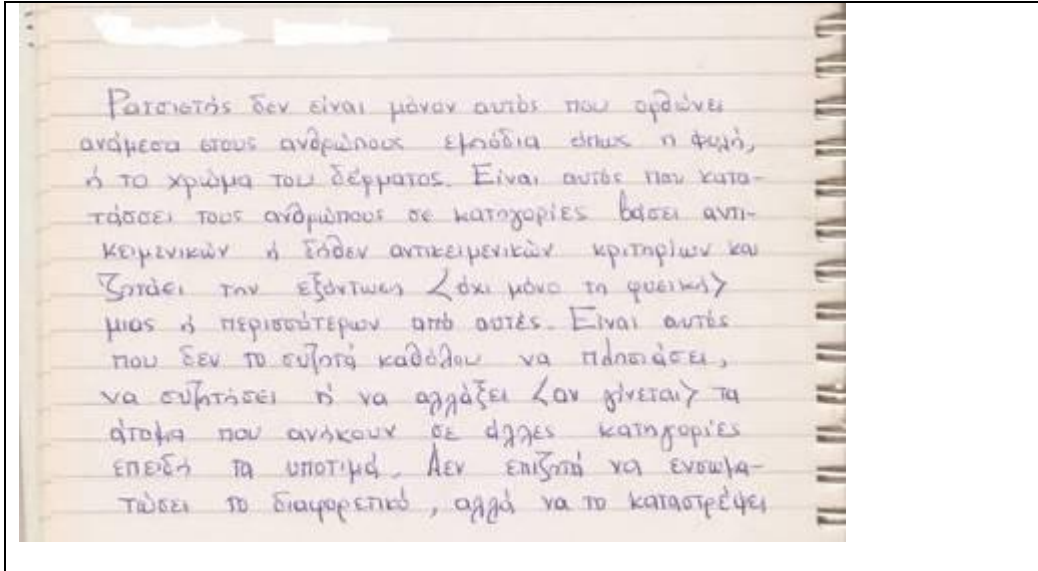 Ρατσιστής δεν είναι μόνον αυτός που ορθώνει
ανάμεσα στους ανθρώπους εμπόδια όπως η φυλή,
ή το χρώμα του δέρματος. Είναι αυτός που κατα-
τάσσει τους ανθρώπους σε κατηγορίες βάσει αντι-
κειμενικών ή δήθεν αντικειμενικών κριτηρίων και
ζητάει την εξόντωση <όχι μόνο τη φυσική>
μιας ή περισσότερων από αυτές. Είναι αυτός
που δεν το συζητά καθόλου να πλησιάσει,
να συζητήσει ή να αλλάξει <αν γίνεται> τα
άτομα που ανήκουν σε άλλες κατηγορίες
επειδή τα υποτιμά. Δεν επιζητά να ενσωμα-
τώσει το διαφορετικό, αλλά να το καταστρέψει